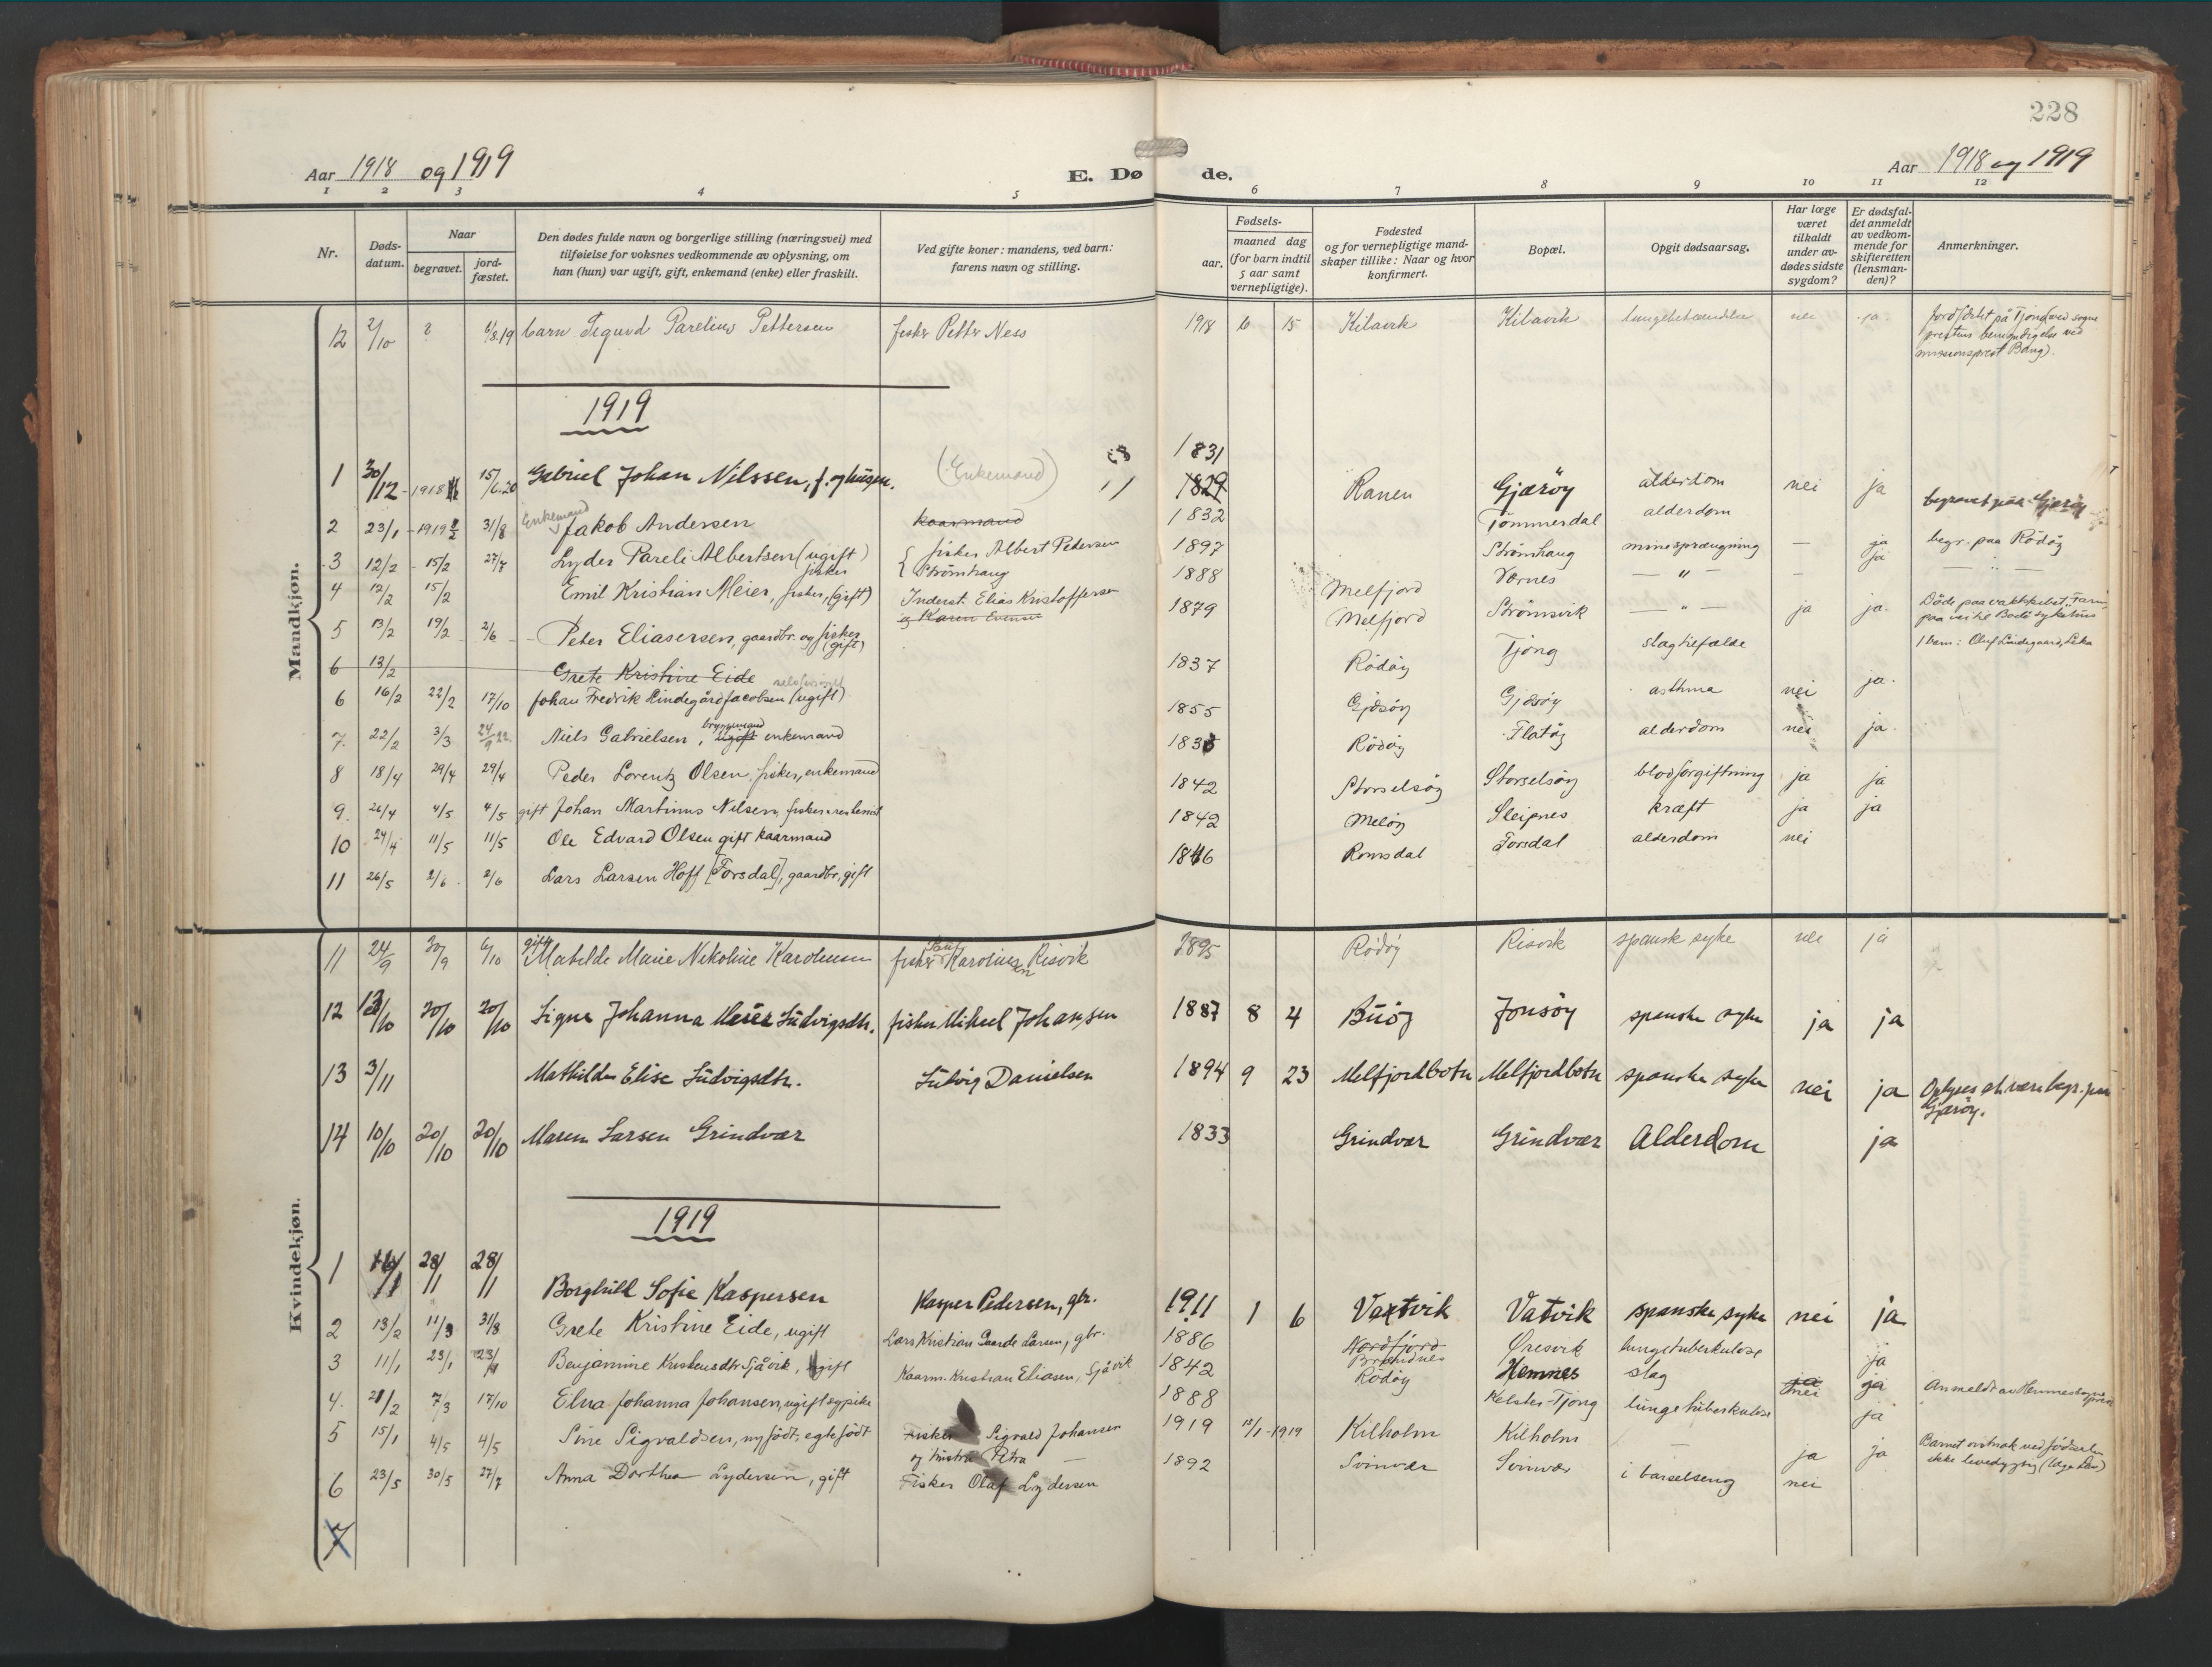 228
Aar 1918 og 1919
E. Dø de.
Aar 1918 og 1919
1 2 3 4 5 6 7 8 9 10 11 12
Nr.
Døds-
datum.
Naar
begravet.
jord-
fæstet.
Den dødes fulde navn og borgerlige stilling (næringsvei) med
tilføielse for voksnes vedkommende av oplysning, om
han (hun) var ugift, gift, enkemand (enke) eller fraskilt.
Ved gifte koner: mandens, ved barn:
farens navn og stilling.
Fødsels-
aar.
maaned dag
(for barn indtil
5 aar samt
vernepligtige).
Fødested
og for vernepligtige mand-
skaper tillike: Naar og hvor
konfirmert.
Bopæl.
Opgit dødsaarsag.
Har læge
været
tilkaldt
under av-
dødes sidste
sygdom?
Er dødsfal-
det anmeldt
av vedkom-
mende for
skifteretten
(lensman-
den)?
Anmerkninger.
Mandkjøn.
12 2/10 ? 6/8.19 barn Sigurd Parelius Pettersen fisker Petter Ness 1918 6 15 Kilavik Kilavik lungebetændelse nei ja Jordfæstet på Tjong (ved sogne
prestens bemyndigelse ved
missionsprest Bang).
1919
1831
1 30/12 -1918 15/6.20 Gabriel Johan Nilssen, f. og husm. (Enkemand) 1829 Ranen Gjærøy alderdom nei ja begravet paa Gjærøy
2 23/1 -1919 31/8 Enkemand Jakob Andersen kaarmand 1832 Tømmerdal alderdom ja begr. paa Rødøy
3 12/2 15/2 27/7 Lyder Pareli Albertsen (ugift) fisker fisker Albert Pedersen
Strømhaug 1897 Strømhaug minesprængning — ja — " —
4 12/2 15/2 Emil Kristian Meier, fisker, (gift) 1888 Melfjord Værnes — " — —
5 13/2 19/2 2/6 Peter Eliasersen, gaardbr. og fisker (gift) Inderst. Elias Kristoffersen
og Karen Evensen 1879 Melfjord Strømsvik — " — ja ja. Døde paa vaktskibet "Farm"
paa vei til Bodø sykehus
6 13/2 Grete Kristine Eide
6 16/2 22/2 17/10 Johan Fredrik Lindegård Jacobsen (ugift) 1837 Rødøy Tjong slagtilfælde 1 barn: Oluf Lindegaard, Leka
7. 22/2 3/3 24/9 22. Niels Gabrielsen, ugift enkemand 1855 Gjæsøy Gjæsøy asthma nei ja.
8 18/4 29/4 29/4 Peder Lorentz Olsen, fisker, enkemand 1835 Rødøy Flatøy alderdom nei ja.
9. 26/4 4/5 4/5 gift Johan Martinus Nilsen, fisker 1842 Storselsøy Storselsøy blodforgiftning ja ja
10 24/4 11/5 11/5 Ole Edvard Olsen gift kaarmand 1842 Meløy Sleipnes kræft ja ja
11 26/5 2/6 2/6 Lars Larsen Hoff [Forsdal], gaardbr., gift 1846 Romsdal Forsdal alderdom nei
Kvindekjøn.
11 24/9 30/9 6/10 gift Matilde Marie Nikoline Karolinsen fisker Karolinsen Risvik 1895 Rødøy Risvik spansk syke nei ja
12 13/10 20/10 20/10 Signe Johanna Meier Ludvigsdtr. fisker Mikael Johansen 1887 8 4 Buøy Jonsøy spanske syke ja ja
13 3/11 Mathilde Elise Ludvigsdtr. Ludvig Danielsen 1894 9 23 Melfjordbotn Melfjordbotn spanske syke nei ja Oplyses at være begr. paa
Gjærøy.
14 10/10 20/10 20/10 Maren Larsen Grindvær 1833 Grindvær Grindvær Alderdom ja
1919
1 16/1 28/1 28/1 Borghild Sofie Kaspersen Kasper Pedersen, gbr. 1911 1 6 Vatvik Vatvik spanske syke nei ja
2 13/2 11/3 31/8 Grete Kristine Eide, ugift Lars Kristian Gaarde Larsen, gbr. 1886 Nordfjord Øresvik lungetuberkulose
3 11/1 23/1 23/1 Benjamine Kristensdtr Sjåvik, ugift Kaarm. Kristian Eliasen, Sjåvik 1842 Rødøy Hemnes slag ja
4. 21/2 7/3 17/10 Elna Johanna Johansen, ugift sypike 1888 Kelster-Tjong lungetuberkulose nei ja Anmeldt av Hemnes sogneprest
5 15/1 4/5 4/5 Sine Sigvaldsen, nyfødt, egtefødt Fisker Sigvald Johansen
og hustru Petra — 1919 15/1-1919 Kilholm Kilholm — ja ja Barnet omkom ved fødselen
ikke levedygtig
6 23/5 30/5 27/7 Anna Dorthea Lydersen, gift Fisker Olaf Lydersen 1892 Svinvær Svinvær i barselseng nei
7